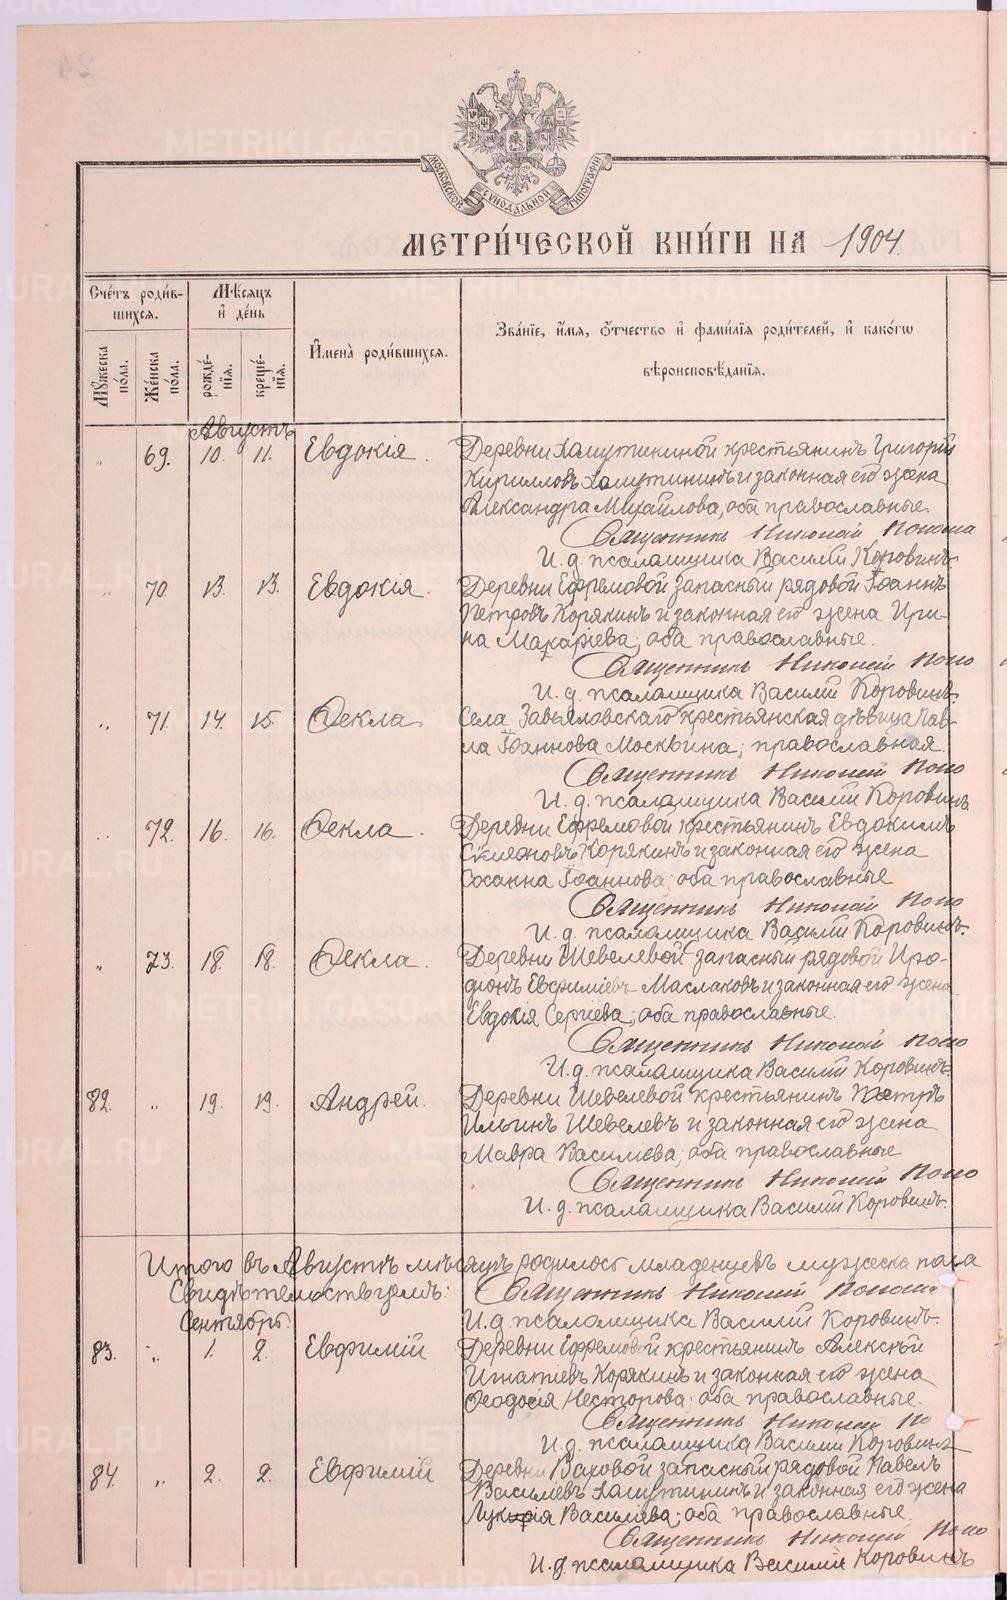 МОСКОВСКОЙ СѴНОДАЛЬНОЙ ТИПОГРАФІИ
МЕТРИ́ЧЕСКОЙ КНИ́ГИ НА 1904.
Сче́тъ роди́в-
шихся.
Мѣ́сяцъ
и҆ де́нь
И҆мена̀ роди́вшихся.
Зва́нїе, и҆́мя, ѻ҆́тчество и҆ фами́лїя роди́телей, и҆ како́гѡ
вѣроисповѣ́данїя.
Мꙋ́жеска по́ла.
Же́нска по́ла.
рожде́-
нїя.
креще́-
нїя.
Августъ
„ 69. 10. 11. Евдокія. Деревни Хамутининой крестьянинъ Григорій
Кирилловъ Хамутининъ и законная его жена
Александра Михайлова, оба православные.
Священникъ Николай
И. д. псаломщика Василій Коровинъ.
„ 70. 13. 13. Евдокія. Деревни Ефремовой запасный рядовой Іоаннъ
Петровъ Корякинъ и законная его жена Ири-
на Макаріева, оба православные.
Священникъ Николай Попо
И. д. псаломщика Василій Коровинъ.
„ 71. 14. 15. Ѳекла Села Завьяловскаго крестьянская дѣвица Пав-
ла Іоаннова Москвина, православная.
Священникъ Николай Попо
И. д. псаломщика Василій Коровинъ
„ 72. 16. 16. Ѳекла. Деревни Ефремовой крестьянинъ Евдокимъ
Симеоновъ Корякинъ и законная его жена
Сосанна Іоаннова, оба православные
Священникъ Николай Попо
И. д. псаломщика Василій Коровинъ.
„ 73. 18. 18. Ѳекла. Деревни Шевелевой запасный рядовой Иро-
діонъ Евфиміевъ Маслаковъ и законная его жена
Евдокія Сергіева, оба православные.
Священникъ Николай Попо
И. д. псаломщика Василій Коровинъ.
82. „ 19. 19. Андрей. Деревни Шевелевой крестьянинъ Петръ
Ильинъ Шевелевъ и законная его жена
Мавра Василіева, оба православные
Священникъ Николай Попо
И. д. псаломщика Василій Коровинъ.
Итого въ Августѣ мѣсяцѣ родилось младенцевъ мужеска пола
Свидѣтельствуемъ: Священникъ Николай
Сентябрь. И. д. псаломщика Василій Коровинъ.
83. „ 1. 2. Евфимій Деревни Ефремовой крестьянинъ Алексѣй
Игнатіевъ Корякинъ и законная его жена
Ѳеодосія Несторова, оба православные.
Священникъ Николай По
И. д. псаломщика Василій Коровинъ
84. „ 2. 2. Евфимій Деревни Ваховой запасный рядовой Павелъ
Василіевъ Хамутининъ и законная его жена
Василіева, оба православные.
Священникъ Николай Попо
И. д. псаломщика Василій Коровинъ
METRIKI.GASO-URAL.RU